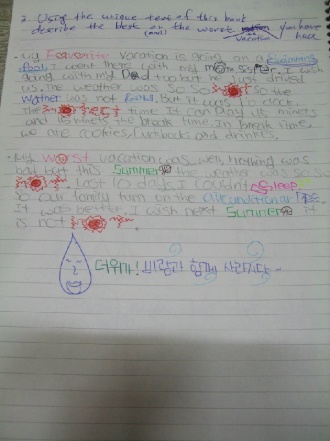 2. Using the unique text of this book
describe the best or the worst vacation you have
(and)
had
My Favorite vacation is going on a swimming
Pool. I went there with my mom sister. I wish
going with my Dad too but he just drived
us. The weather was so so so the
water was not cold. But it was 10 clock.
The rest time. It can play 45 minets
and 15 minets the break time. In break time,
we ate cookies, cutback and drinks.
My worst vacation was well, Nothing was
bad but this Summer the weather was so so
Last 10 days, I couldn't sleep
so our family turn on the airconditional
It was better. I wish next Summer it
is not
더위가! 바람과 함께 사라지다~